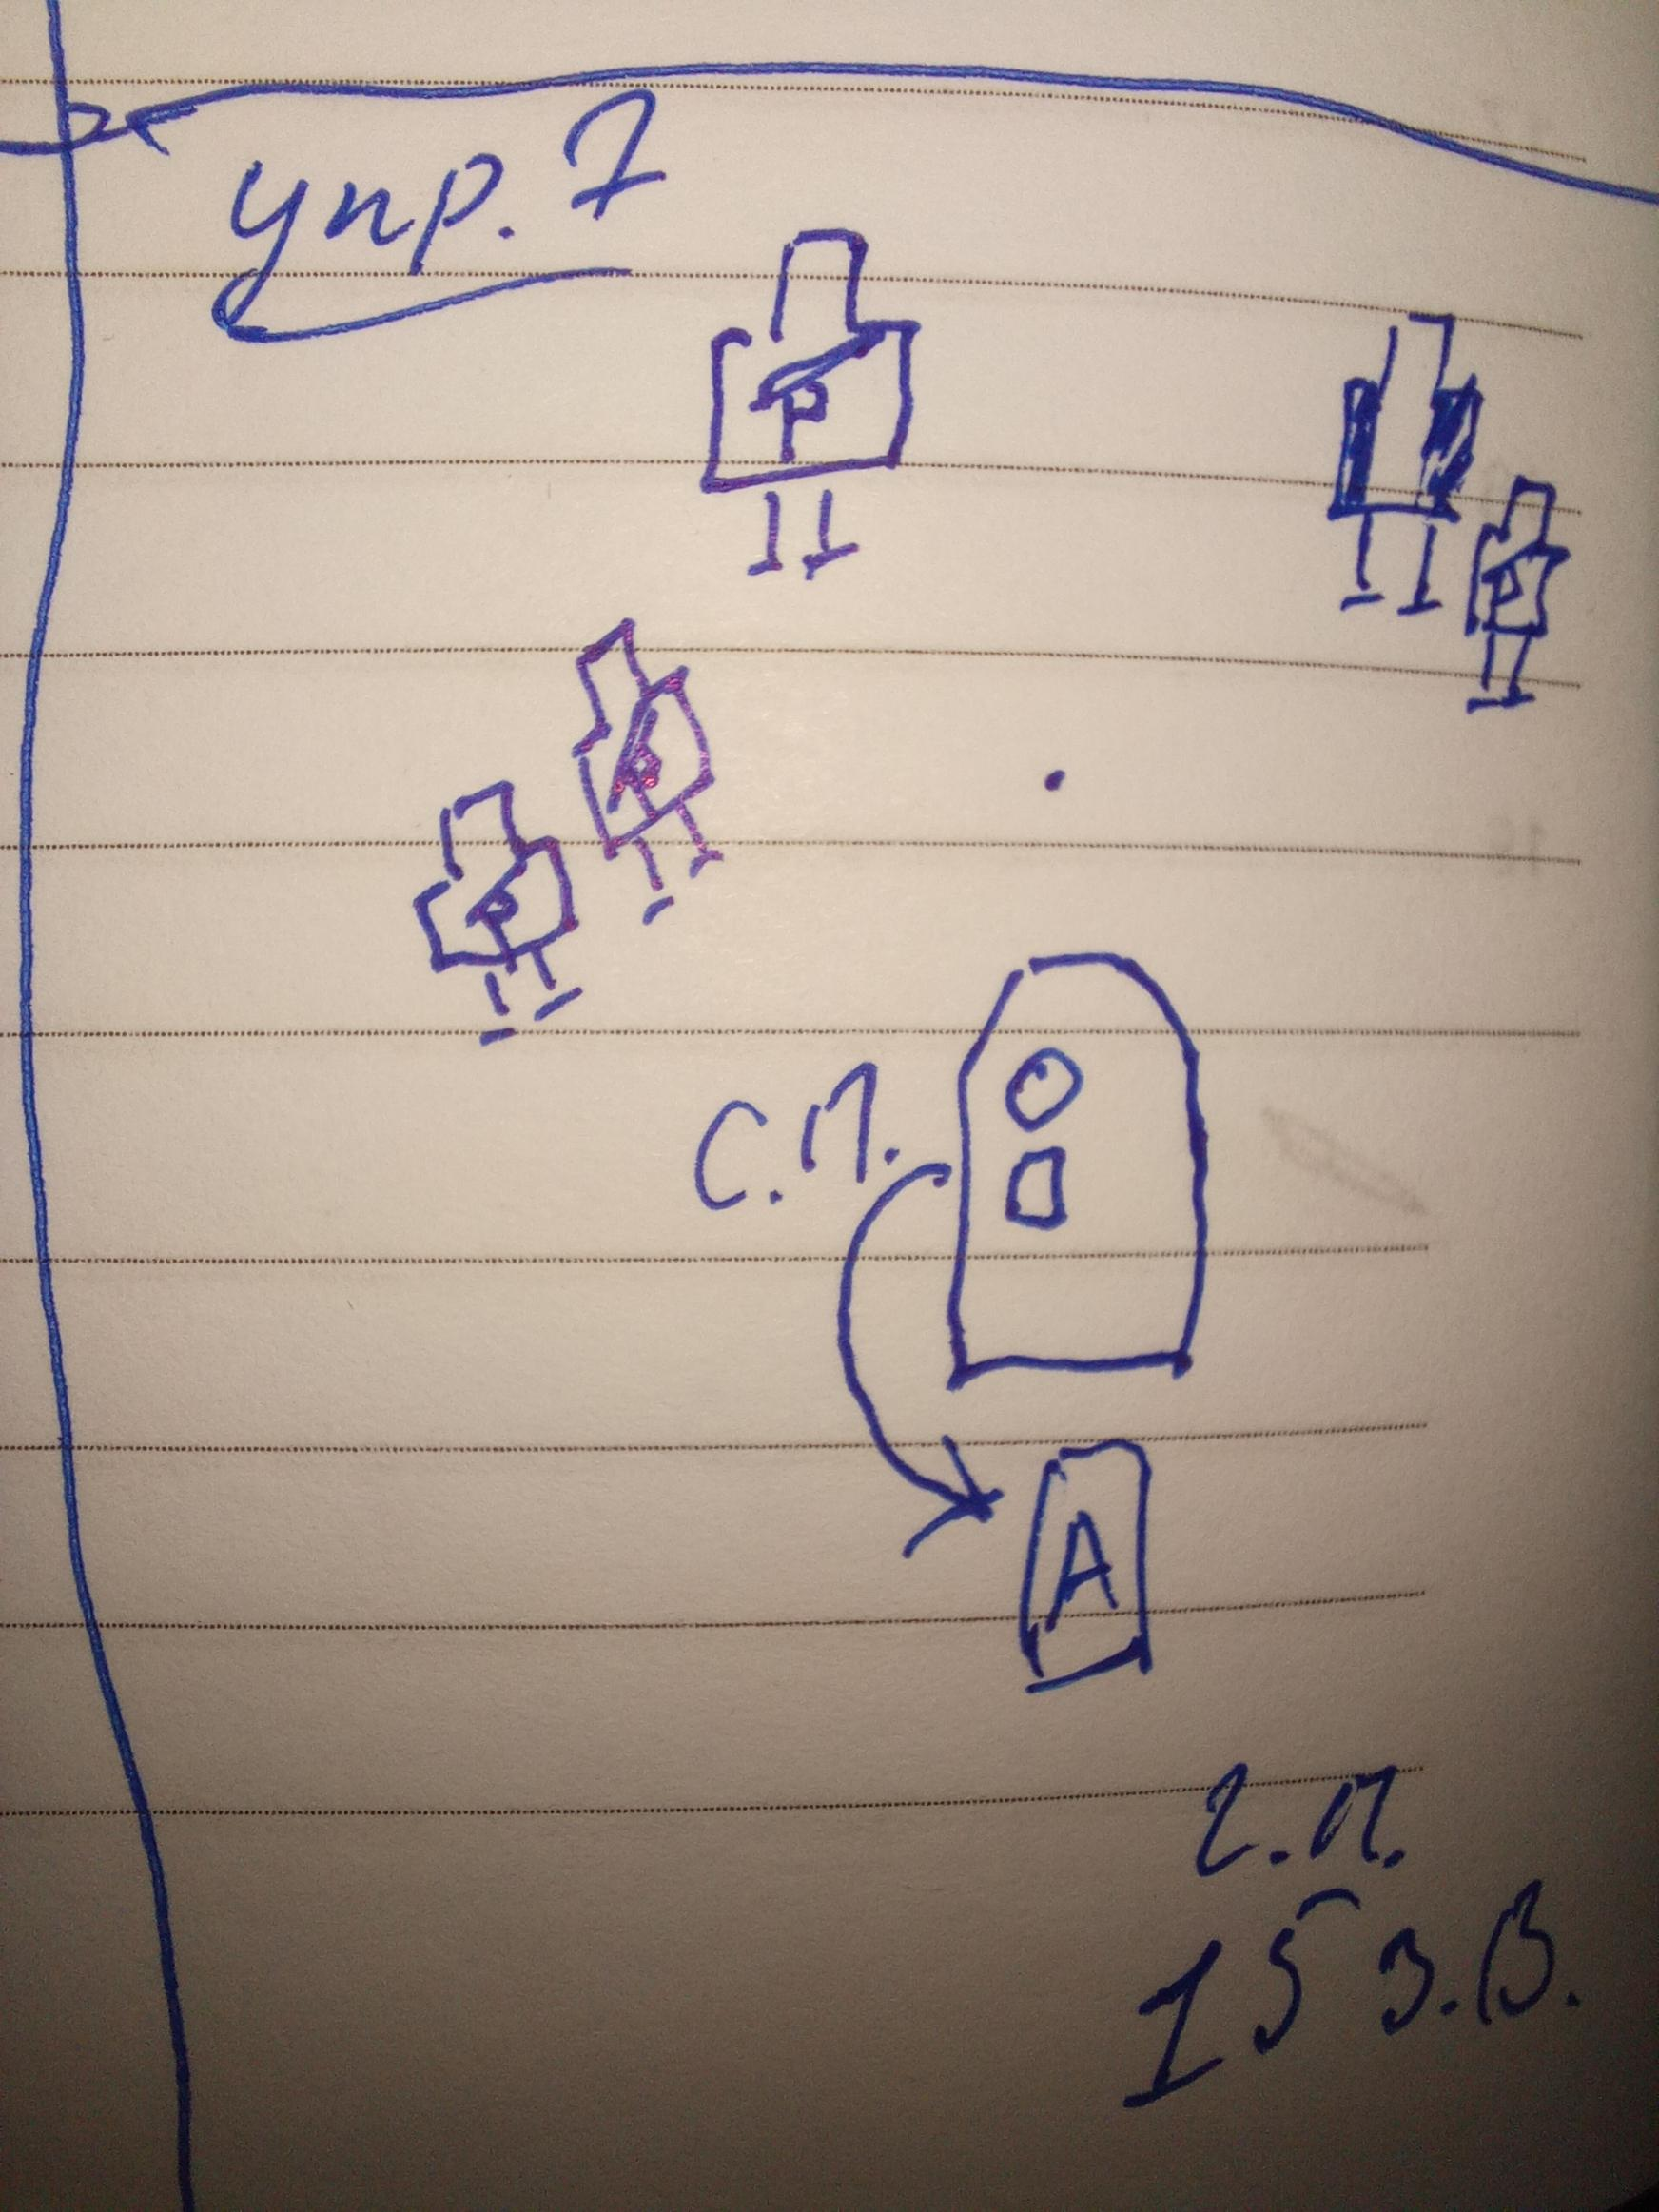 упр. 7
Р
Р
Р
Р
С.П.
А
г.п.
15 З.В.